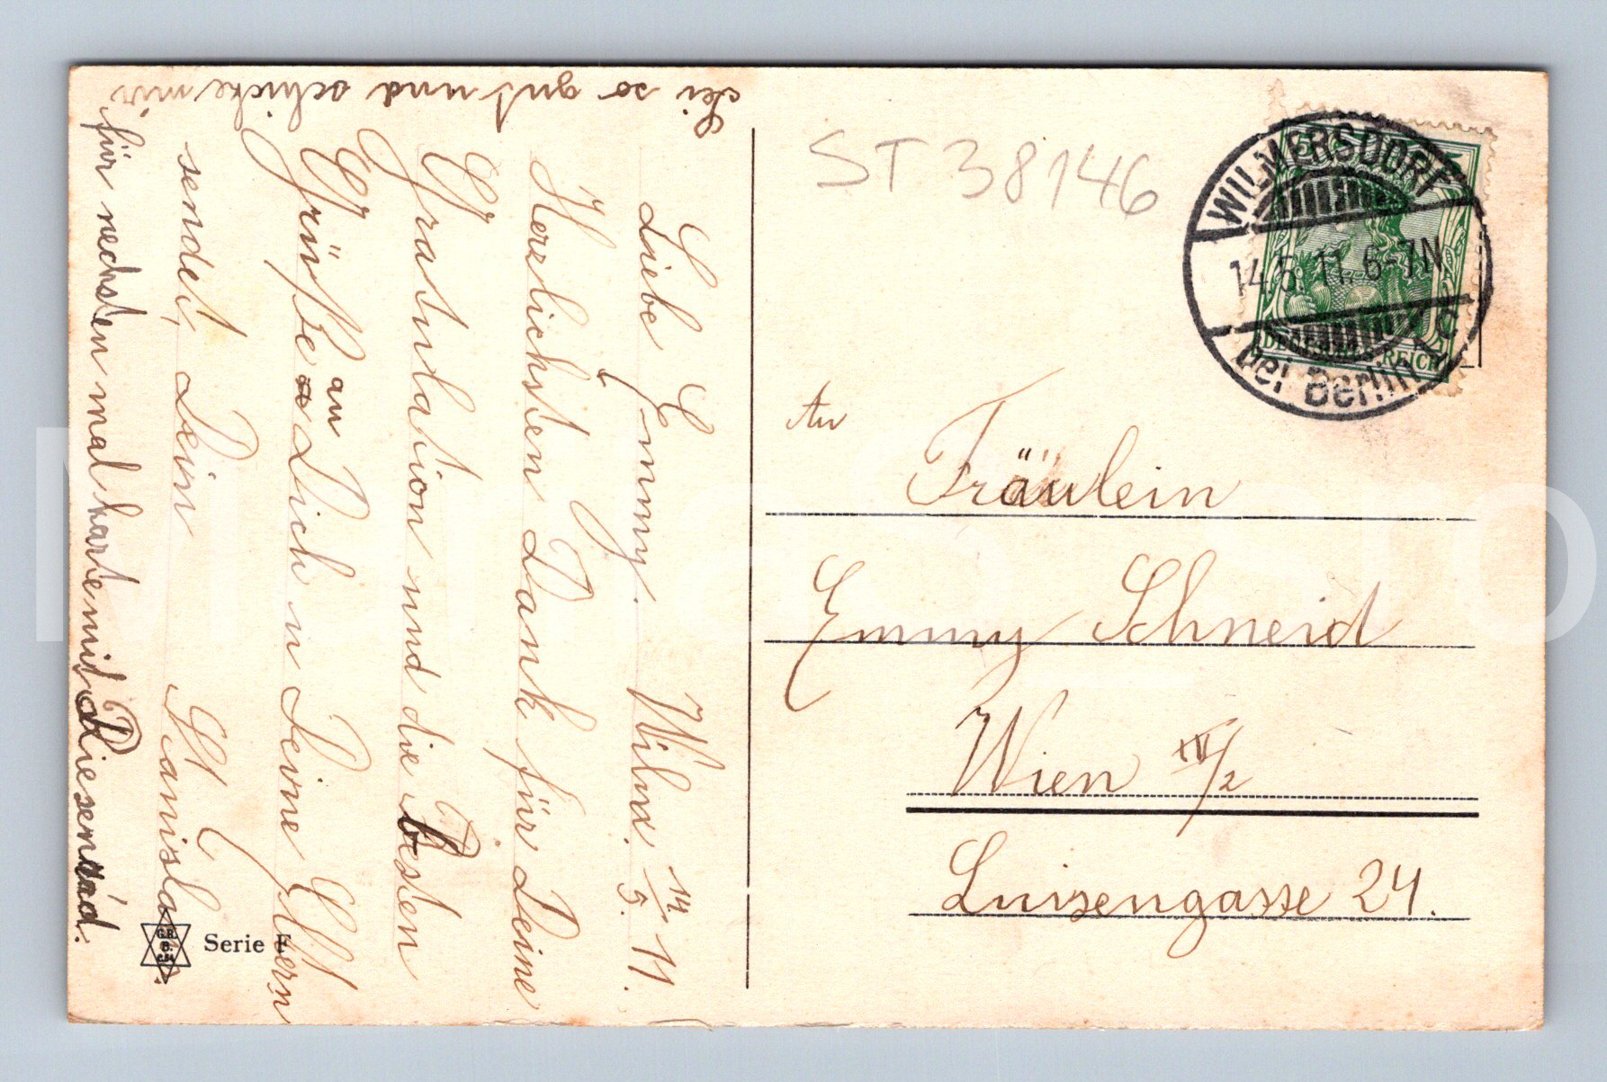 Liebe Emmy. Wilm. 14/5. 11.
Herzlichsten Dank für Deine
Gratulation und die Besten
Grüße an Dich u Deine Eltern
sendet, Dein Stanislaus.
Sei so gut und schicke mir
für nechsten mal karte mit Diesen ad.
Serie F
G.B.
ST 38146
WILMERSDORF
14.5.11.6-7N
bei Berlin
DEUTSCHES REICH
An
Fräulein
Emmy Schneid
Wien XIV/2
Luisengasse 24.